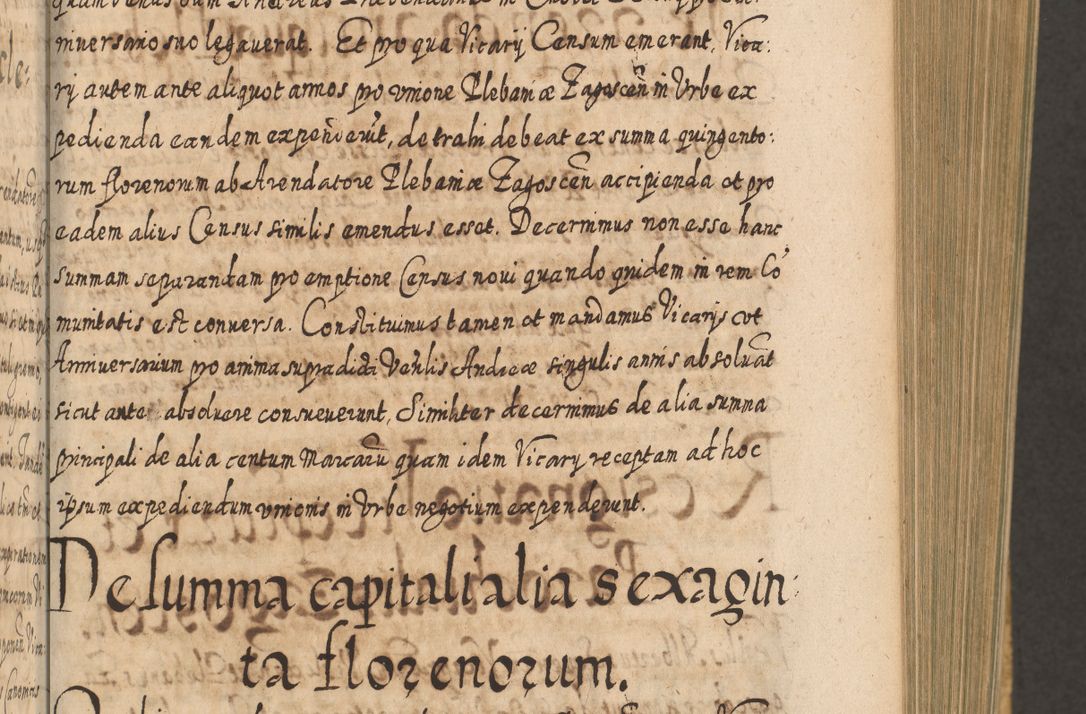 niversario suo legaverat. Et pro qua Vicarij Censum emerant, Vica:
rij autem ante aliquot annos pro unione Plebaniæ Zagoscen̄ in Urbe ex
pedienda eandem expen̄derūt, detrahi debeat ex summa quingento:
rum florenorum ab Arendatore Plebaniæ Zagoscen̄ accipienda et pro
eadem alius Census similis emendus esset. Decernimus non esse hanc
summam separandam pro emptione Census novi quando quidem in rem Co͂
munitatis est conversa. Constituimus tamen et mandamus Vicarijs ut
Anniversarium pro anima supradicti Ven̄lis Andreæ singulis annis absoluāt
sicut ante absoluere consueuerunt, Similiter decernimus de alia summa
principali de alia centum Marcarū quam idem Vicarij receptam ad hoc
ipsum expediendum unionis in Urbe negotium expenderunt.
De summa capitali alia sexagin:
ta florenorum.